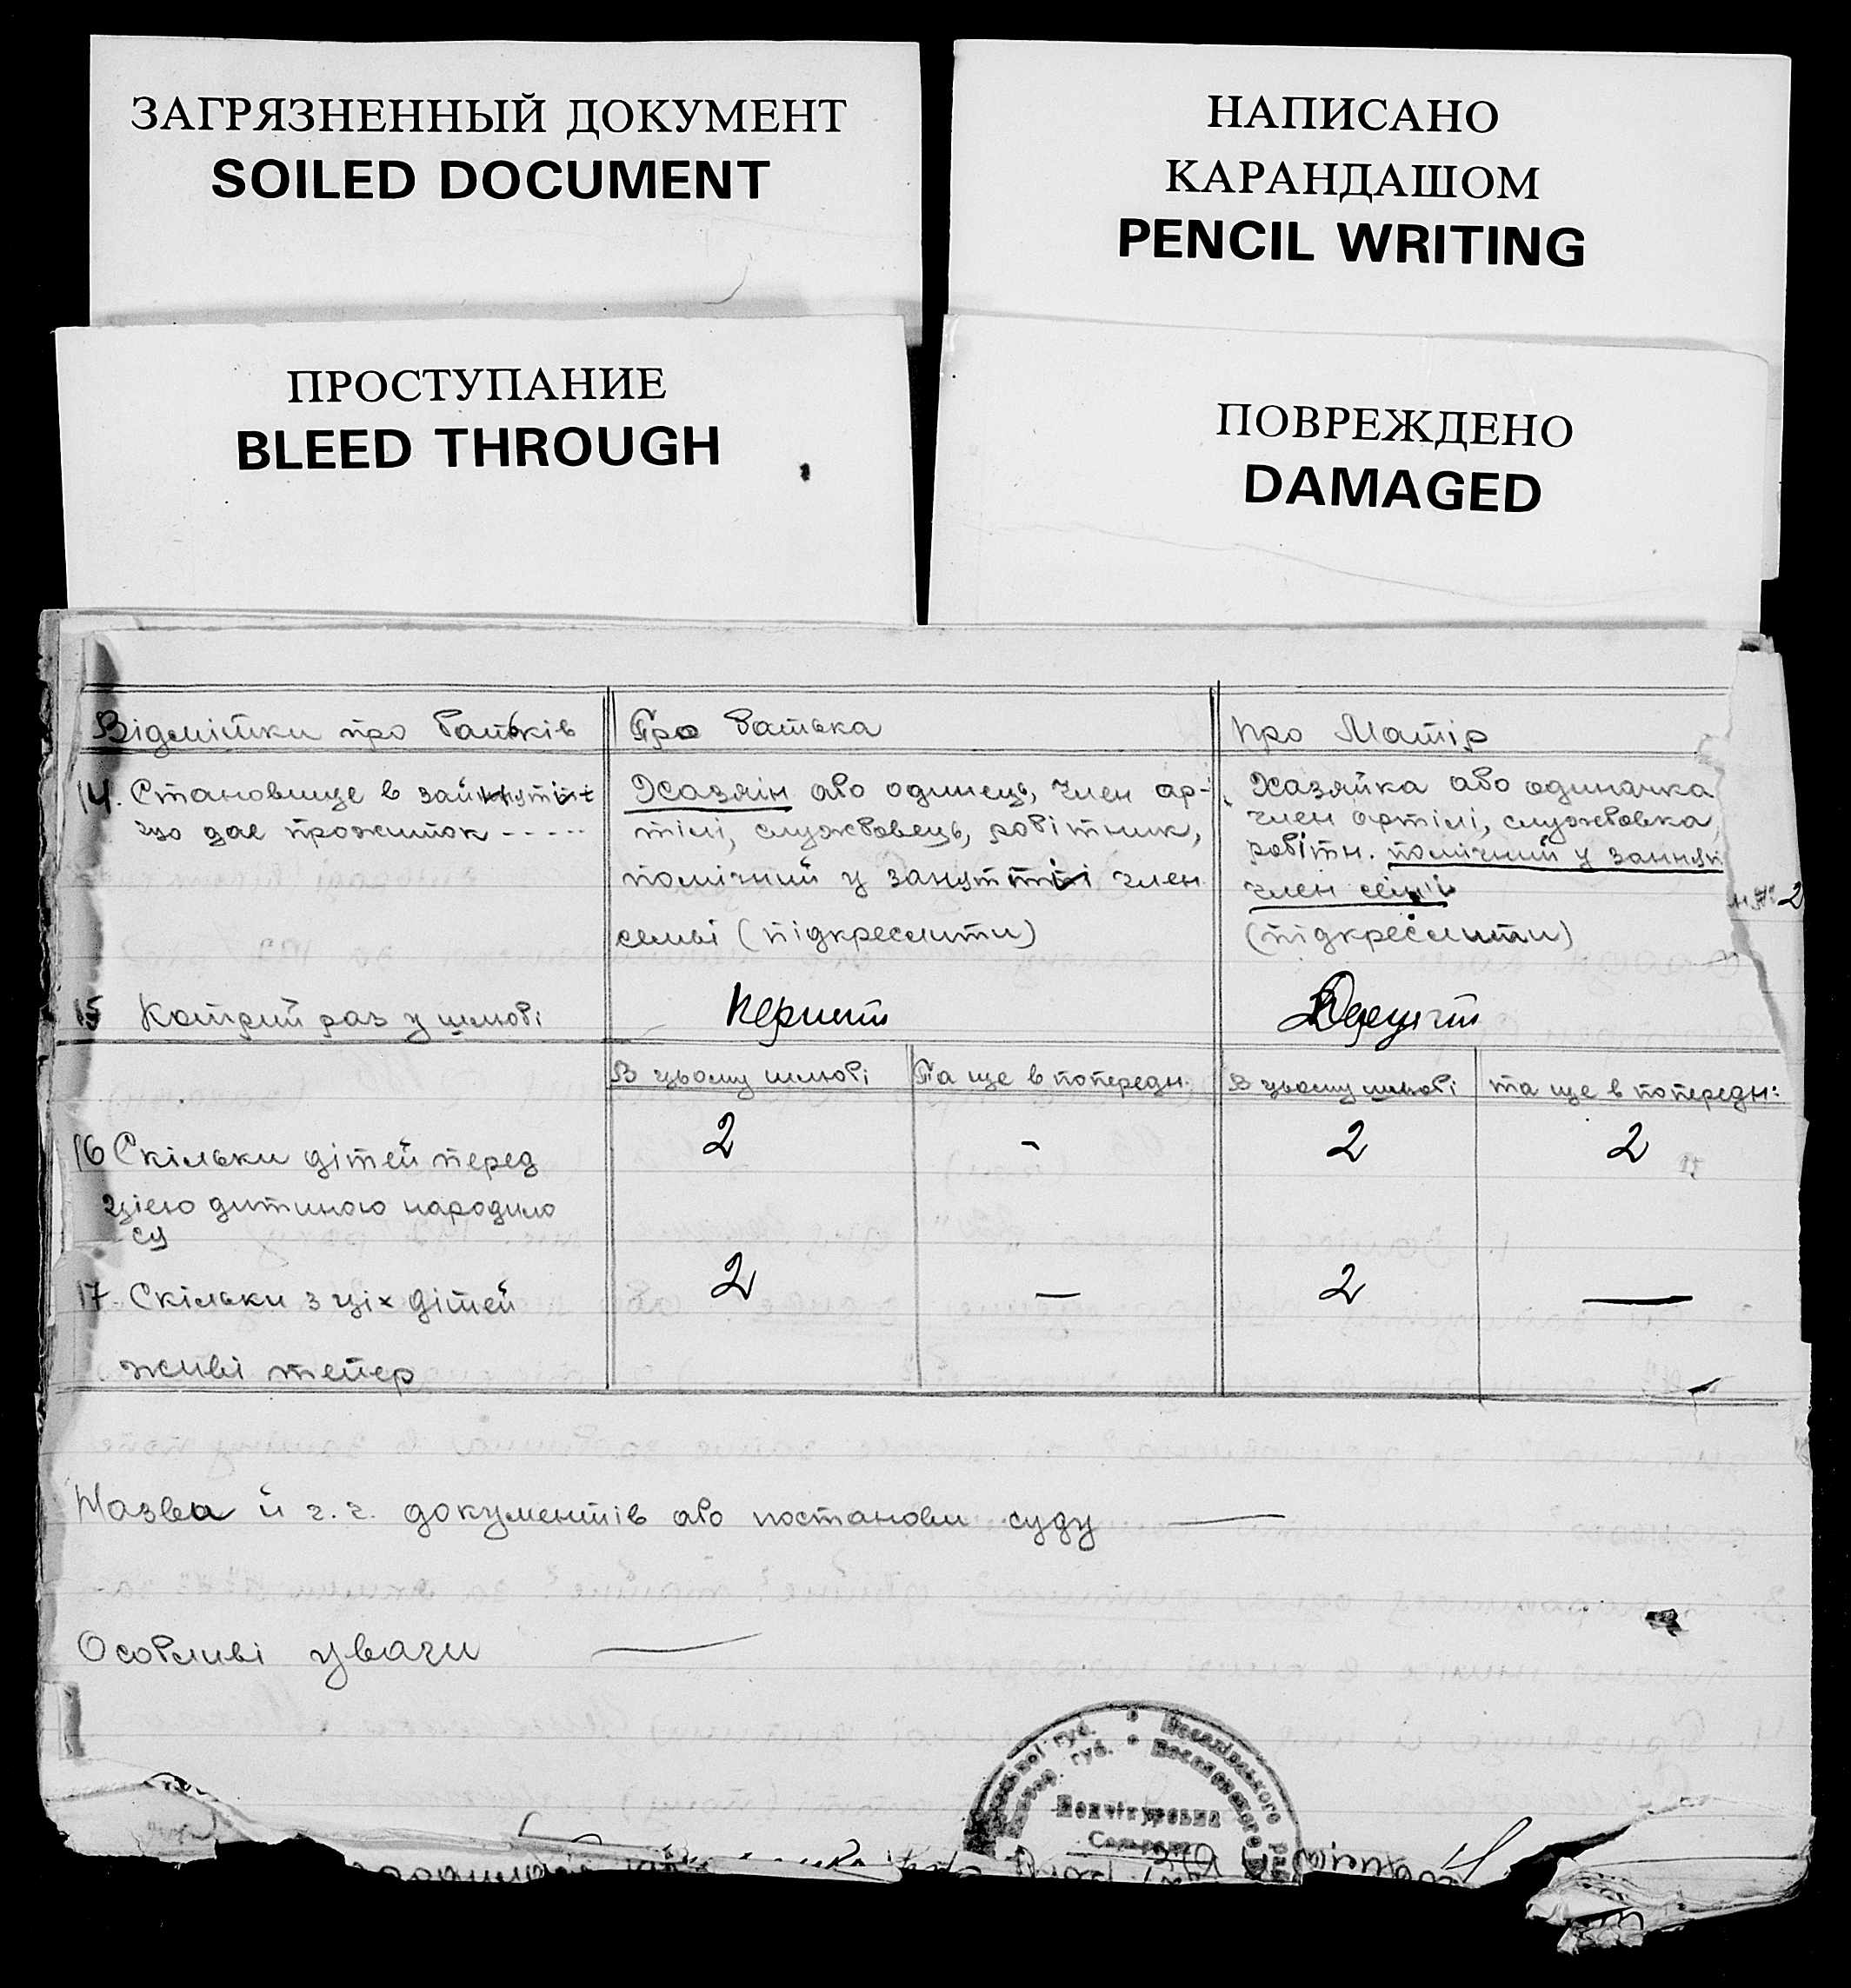 ЗАГРЯЗНЕННЫЙ ДОКУМЕНТ
SOILED DOCUMENT
НАПИСАНО
КАРАНДАШОМ
PENCIL WRITING
ПРОСТУПАНИЕ
BLEED THROUGH
ПОВРЕЖДЕНО
DAMAGED
Відмітки про батьків
Про батька
про Матір
14. Становище в
що дає прожиток - - - - -
Хазяін або одинець, член ар-
тілі, службовець, робітник,
помічний у член
семьі (підкреслити)
Хазяйка або одиначка
член артілі, службовка,
робітн. помічний у
член сем'і
(підкреслити)
15 Котрий раз у шлюбі
Перший
В цьому шлюбі
Та ще в попередн.
В цьому шлюбі
та ще в попередн:
16 Скільки дітей перед
цією дитиною народило
ся
2
-
2
2
17. Скільки з ціх дітей
живі тепер
2
—
2
—
Назва й г. г. документів або постанови суду —
Особливі уваги —